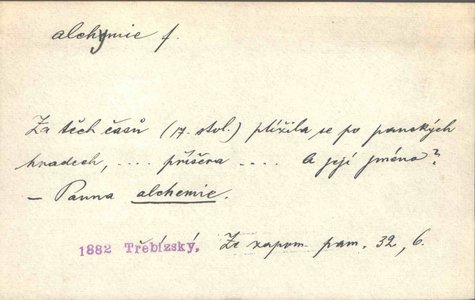 alchymie f.
Za těch časů (17. stol.) plížila se po panských
hradech, .... příšera .... A její jméno?
— Panna alchemie.
1882 Třebízský, Ze zapom. pam. 32, 6.